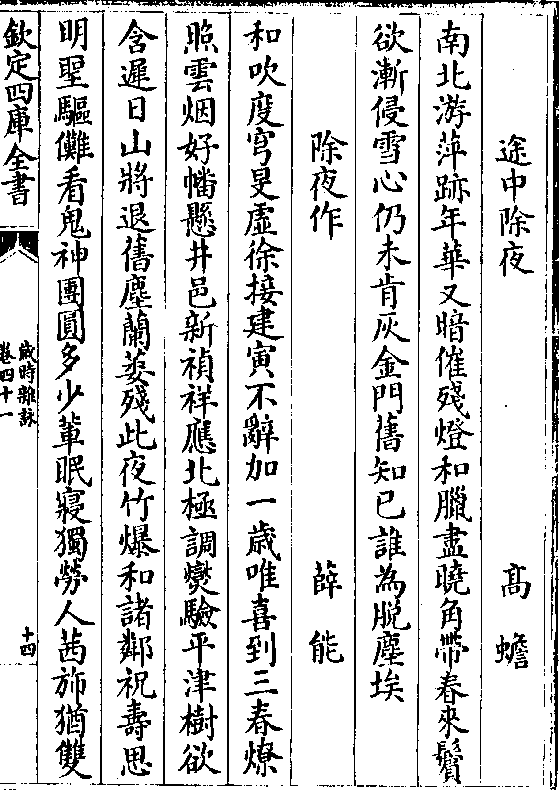 途中除夜 髙蟾
南北游萍跡年華又暗催殘燈和臘盡曉角帶春來鬢
欲漸侵雪心仍未肯灰金門舊知已誰為脱塵埃
除夜作 薛能
和吹度穹旻虚徐接建寅不辭加一歲唯喜到三春燎
照雲烟好幡懸井邑新禎祥應北極調爕驗平津樹欲
含遲日山將退舊塵蘭萎殘此夜竹爆和諸鄰祝夀思
明聖驅儺看鬼神團圓多少輩眠寢獨勞人茜斾猶雙
欽定四庫全書
歲時雜詠
卷四十一
十四